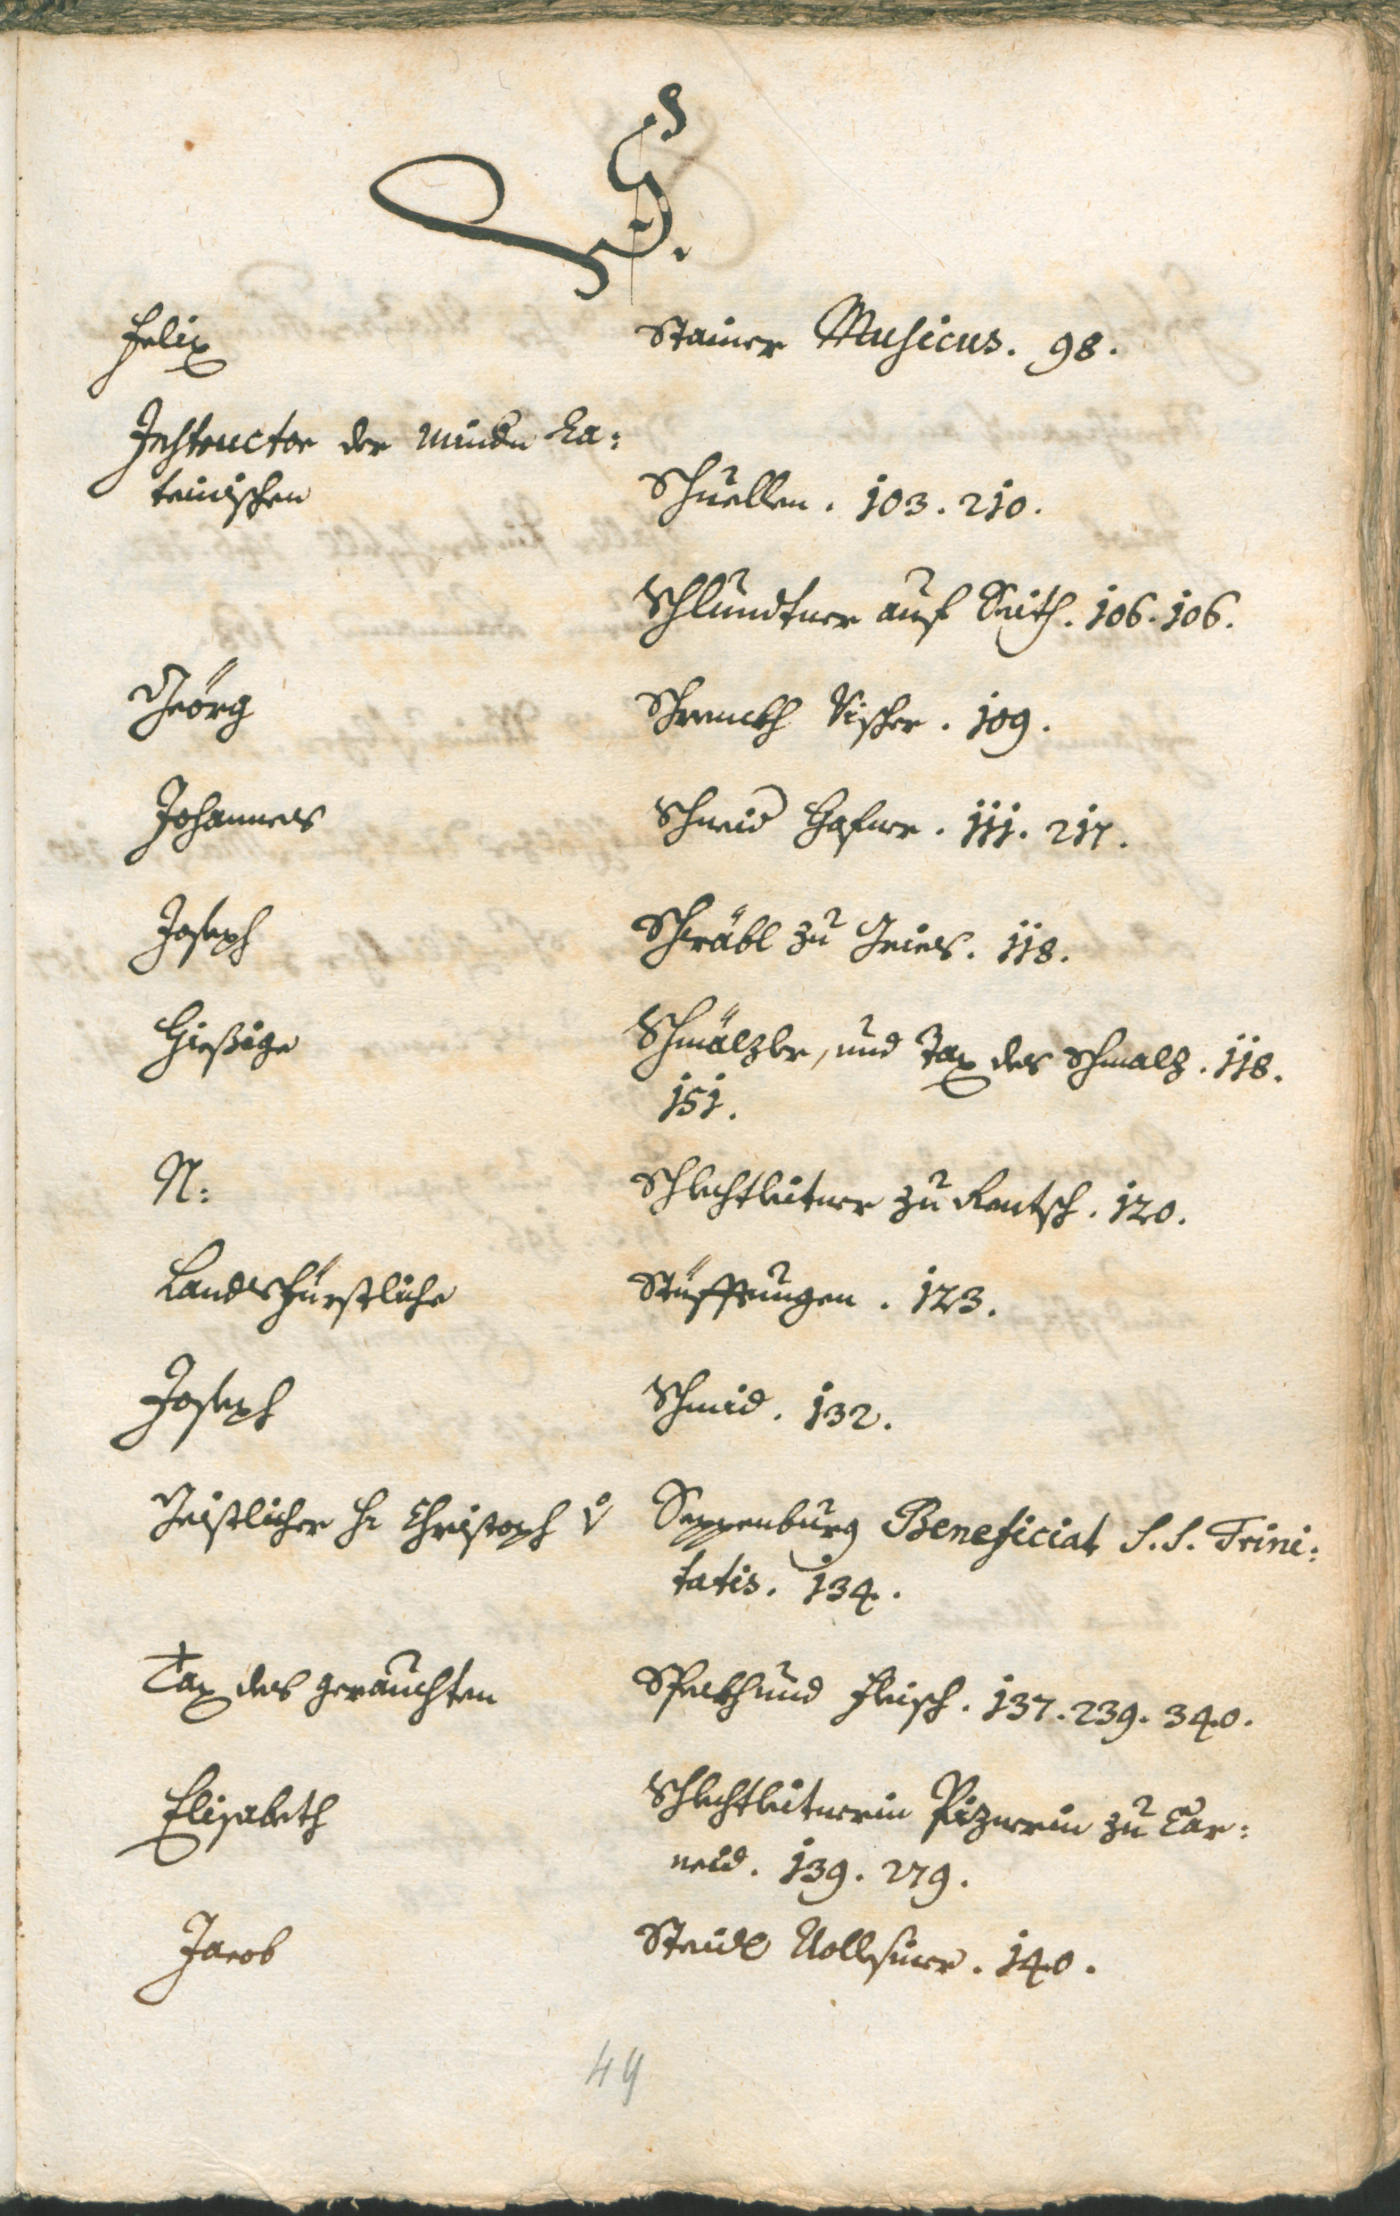 S.
Felix Stainer Musicus. 98.
Instructor der mindn La:
teinischen Schuellen. 103. 210.
Schlundtner auf Seith. 106. 106.
Geörg Schrenckh Vischer. 109.
Johannes Schmid Hafner. 111. 217.
Joseph Schräbl zu Gries. 118.
Hießige Schmälzler, und Tax des Schmalz. 118.
151.
N: Schlechtleitner zu Rentsch. 120.
Landsfürstliche Stüfftungen. 123.
Joseph Schmid. 132.
Geistlicher H: Christoph v Seppenburg Beneficiat S.S. Trini:
tatis. 134.
Tax des gerauchten Speckh und Fleisch. 137. 239. 340.
Elisabeth Schlechtleitnerin Piznerin zu Car:
neid. 139. 279.
Jacob Steidl 140.
49